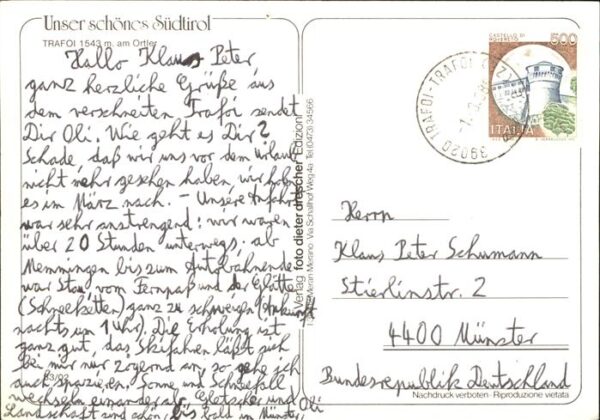 Unser schönes Südtirol
TRAFOI 1543 m. am Ortler
Hallo Klaus Peter
ganz herzliche Grüße aus
dem verschneiten Trafoi sendet
Dir Oli. Wie geht es Dir?
Schade, daß wir uns vor dem Urlaub
nicht mehr gesehen haben, wir holen
es im März nach. – Unsere Anfahrt
war sehr anstrengend: wir waren
über 20 Stunden unterwegs. ab
Memmingen bis zum Autobahnende
war Stau, vom Fernpaß und der Glätte
(Schneeketten) ganz zu schweigen (Ankunft
nachts um 1 Uhr). Die Erholung ist
ganz gut, das Skifahren läßt sich
bei mir nur zögernd an, so gehe ich
auch spazieren. Sonne und Schneefall
wechseln einander ab. Gletscher und
Landschaft sind schön, bis bald in Münster, Oli
83/02
Verlag foto dieter drescher Edizioni
Meran Merano Via Schallhof Weg 4a Tel (0473) 34566
CASTELLO DI
ROVERETO
500
ITALIA
39020 TRAFOI-TRAFOI (BZ)
Herrn
Klaus Peter Schumann
Stierlinstr. 2
4400 Münster
Bundesrepublik Deutschland
Nachdruck verboten · Riproduzione vietata